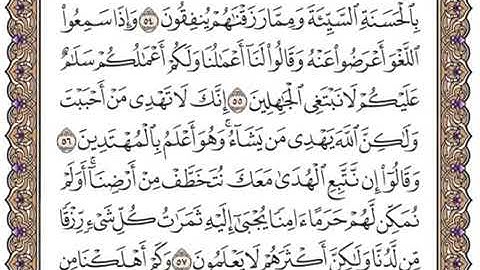 بِالْحَسَنَةِ السَّيِّئَةَ وَمِمَّا رَزَقْنَٰهُمْ يُنفِقُونَ ٥٤ وَإِذَا سَمِعُوا۟
اللَّغْوَ أَعْرَضُوا۟ عَنْهُ وَقَالُوا۟ لَنَآ أَعْمَٰلُنَا وَلَكُمْ أَعْمَٰلُكُمْ سَلَٰمٌ
عَلَيْكُمْ لَا نَبْتَغِى الْجَٰهِلِينَ ٥٥ إِنَّكَ لَا تَهْدِى مَنْ أَحْبَبْتَ
وَلَٰكِنَّ اللَّهَ يَهْدِى مَن يَشَآءُ ۚ وَهُوَ أَعْلَمُ بِالْمُهْتَدِينَ ٥٦
وَقَالُوٓا۟ إِن نَّتَّبِعِ الْهُدَىٰ مَعَكَ نُتَخَطَّفْ مِنْ أَرْضِنَآ ۚ أَوَلَمْ
نُمَكِّن لَّهُمْ حَرَمًا ءَامِنًا يُجْبَىٰٓ إِلَيْهِ ثَمَرَٰتُ كُلِّ شَىْءٍ رِّزْقًا
مِّن لَّدُنَّا وَلَٰكِنَّ أَكْثَرَهُمْ لَا يَعْلَمُونَ ٥٧ وَكَمْ أَهْلَكْنَا مِن